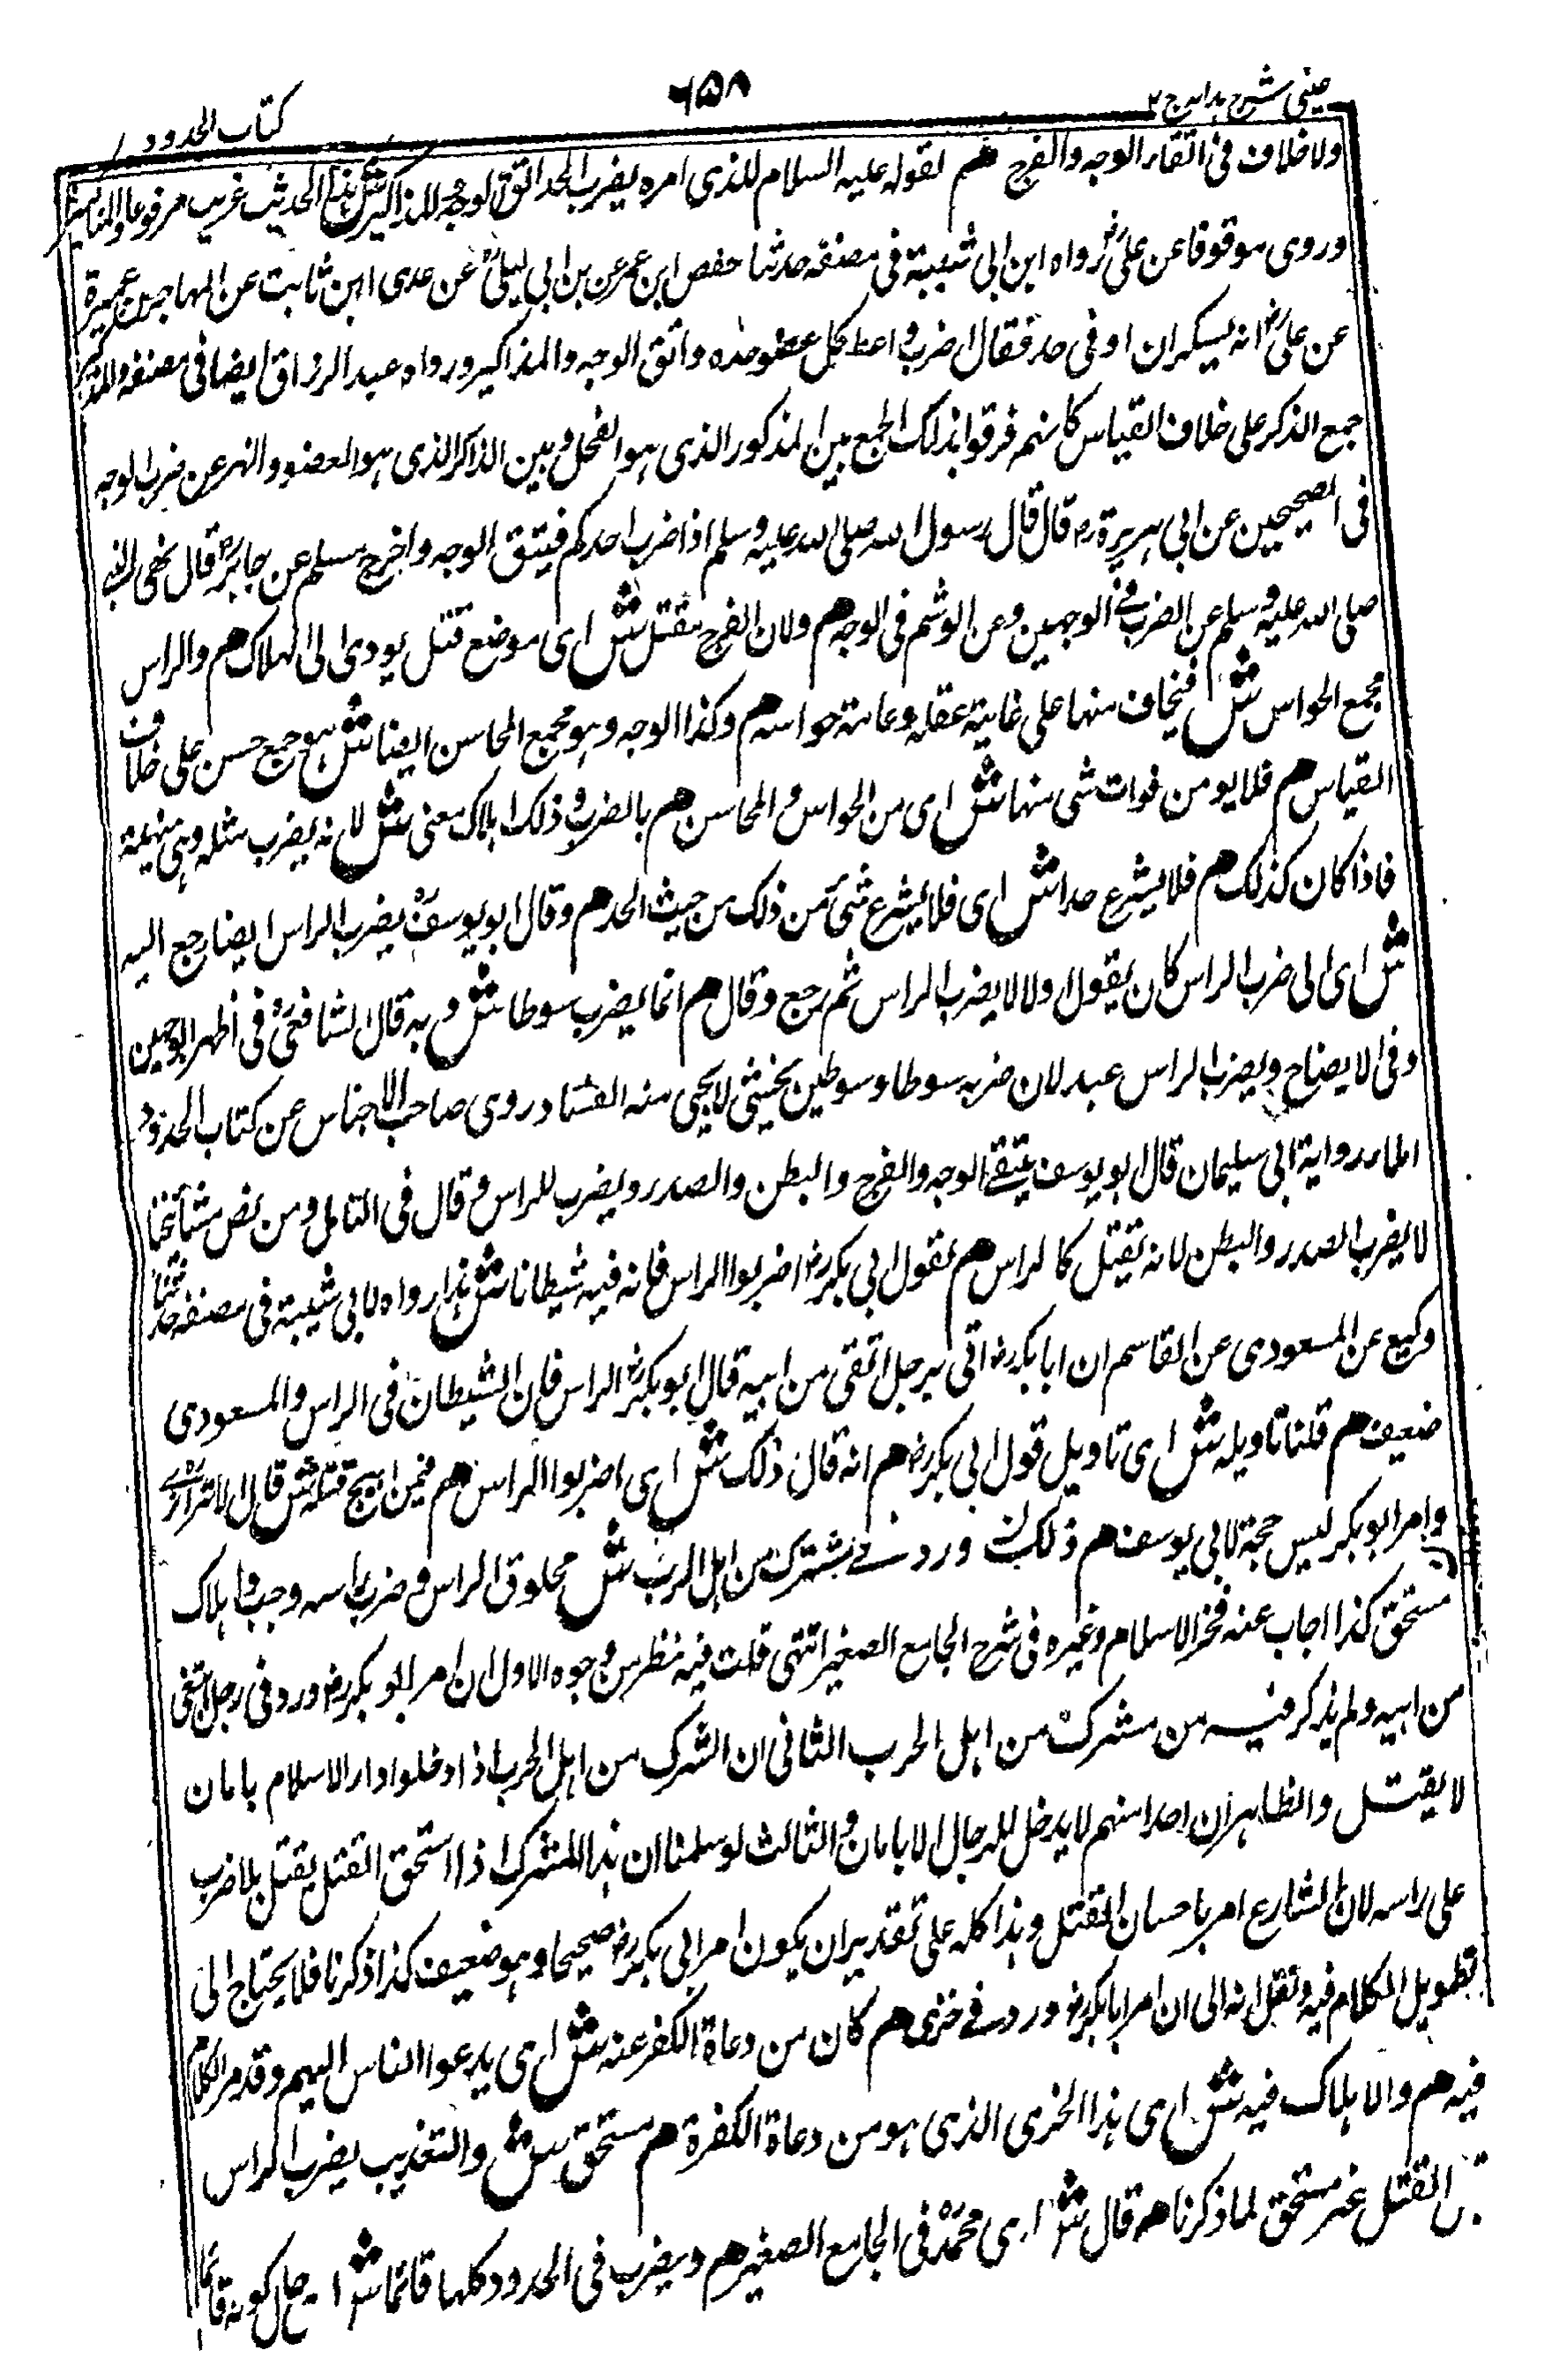 عینی شرح ہدایہ ج ۲
۶۵۸
کتاب الحدود
ولا خلاف فی اتقاء الوجه والفرج هم لقوله علیه السلام للذی امره یضرب الحد اتق الوجه والمذاکیر ش هذا الحدیث غریب مرفوعا
وروی موقوفا عن علی رض رواه ابن ابی شیبة فی مصنفه حدثنا حفص ابن عمر عن بن ابی لیلی عن عدی ابن ثابت عن المهاجر بن عمیرة
عن علی رض انه بسکران او فی حد فقال اضرب واعط کل عضو حقه واتق الوجه والمذاکیر ورواه عبد الرزاق ایضا فی مصنفه والمذاکیر
جمع الذکر علی خلاف القیاس کانهم فرقوا بذلک الجمع بین المذکور الذی هو الفحل وبین الذاکر الذی هو العضو والنهر عن ضرب الوجه
فی الصحیحین عن ابی هریرة رض قال قال رسول الله صلی الله علیه وسلم اذا ضرب احدکم فیتق الوجه واخرج مسلم عن جابر رض قال نهی النبی
صلی الله علیه وسلم عن الضرب فی الوجهین وعن الوشم فی الوجه هم ولان الفرج مقتل ش ای موضع قتل یودی الی الهلاک هم والراس
مجمع الحواس ش فیخاف منها علی غایة عقله وعامة حواسه هم وکذا الوجه وهو مجمع المحاسن ایضا ش هو جمع حسن علی خلاف
القیاس هم فلا یومن فوات شی منها ش ای من الحواس والمحاسن هم بالضرب وذلک اهلاک معنی ش لانه یضرب مثله وهی منهیة
فاذا کان کذلک هم فلا یشرع حدا ش ای فلا یشرع شئ من ذلک من حیث الحد هم وقال ابو یوسف یضرب الراس ایضا رجع الیه
ش ای الی ضرب الراس کان یقول اولا لا یضرب الراس ثم رجع وقال هم انما یضرب سوطا ش وبه قال الشافعی فی اظهر الوجهین
وفی الایضاح ویضرب الراس عبد لان ضربه سوطا وسوطین یخشی لا یجی منه الفساد وروی صاحب الاجناس عن کتاب الحدود
املاء روایة ابی سلیمان قال ابو یوسف یتقی الوجه والفرج والبطن والصدر ویضرب للراس وقال فی التامل ومن بعض مشائخنا
لا یضرب الصدر والبطن لانه یقتل کالراس هم لقول ابی بکر رض اضربوا الراس فانه فیه شیطانا ش هذا رواه لابی شیبة فی مصنفه حدثنا
وکیع عن المسعودی عن القاسم ان ابا بکر رض اتی برجل اتقی من ابیه قال ابو بکر رض الراس فان الشیطان فی الراس والمسعودی
ضعیف هم قلنا تاویله ش ای تاویل قول ابی بکر رض هم انه قال ذلک ش ای اضربوا الراس هم فیمن ابیح قتله ش قال الاترازی
وامر ابو بکر لیس حجة لابی یوسف هم ذلک ورد فی مشترک من اهل الرب ش محلوق الراس وضرب راسه وجب واهلاک
مستحق کذا اجاب عنه فخر الاسلام وغیره فی شرح الجامع الصغیر انتهی قلت فیه نظر من وجوه الاول ان امر ابو بکر رض ورد فی رجل اتقی
من ابیه ولم یذکر فیه من مشرک من اهل الحرب الثانی ان الشرک من اهل الحرب اذا دخلوا دار الاسلام بامان
لا یقتل والظاهر ان احدا منهم لا یدخل للرجال الا بامان والثالث لو سلمنا ان هذا المشرک اذا استحق القتل یقتل بلا ضرب
علی راسه لان الشارع امر باحسان القتل وهذا کله علی تقدیر ان یکون امر ابی بکر رض صحیحا وهو ضعیف کذا ذکرنا فلا یحتاج الی
تطویل الکلام فیه ونقل انه الی ان امر ابا بکر رض ورد فی خزی هم کان من دعاة الکفر عنه ش ای یدعوا الناس الیهم وقد مر الکلام
فیه هم والاهلاک فیه ش ای هذا الخزی الذی هو من دعاة الکفرة هم مستحق ش والتعذیب یضرب الراس
القتل غیر مستحق لما ذکرنا هم قال ش ای محمد فی الجامع الصغیر هم ویضرب فی الحدود کلها قائما ش ای حال کونه قائما